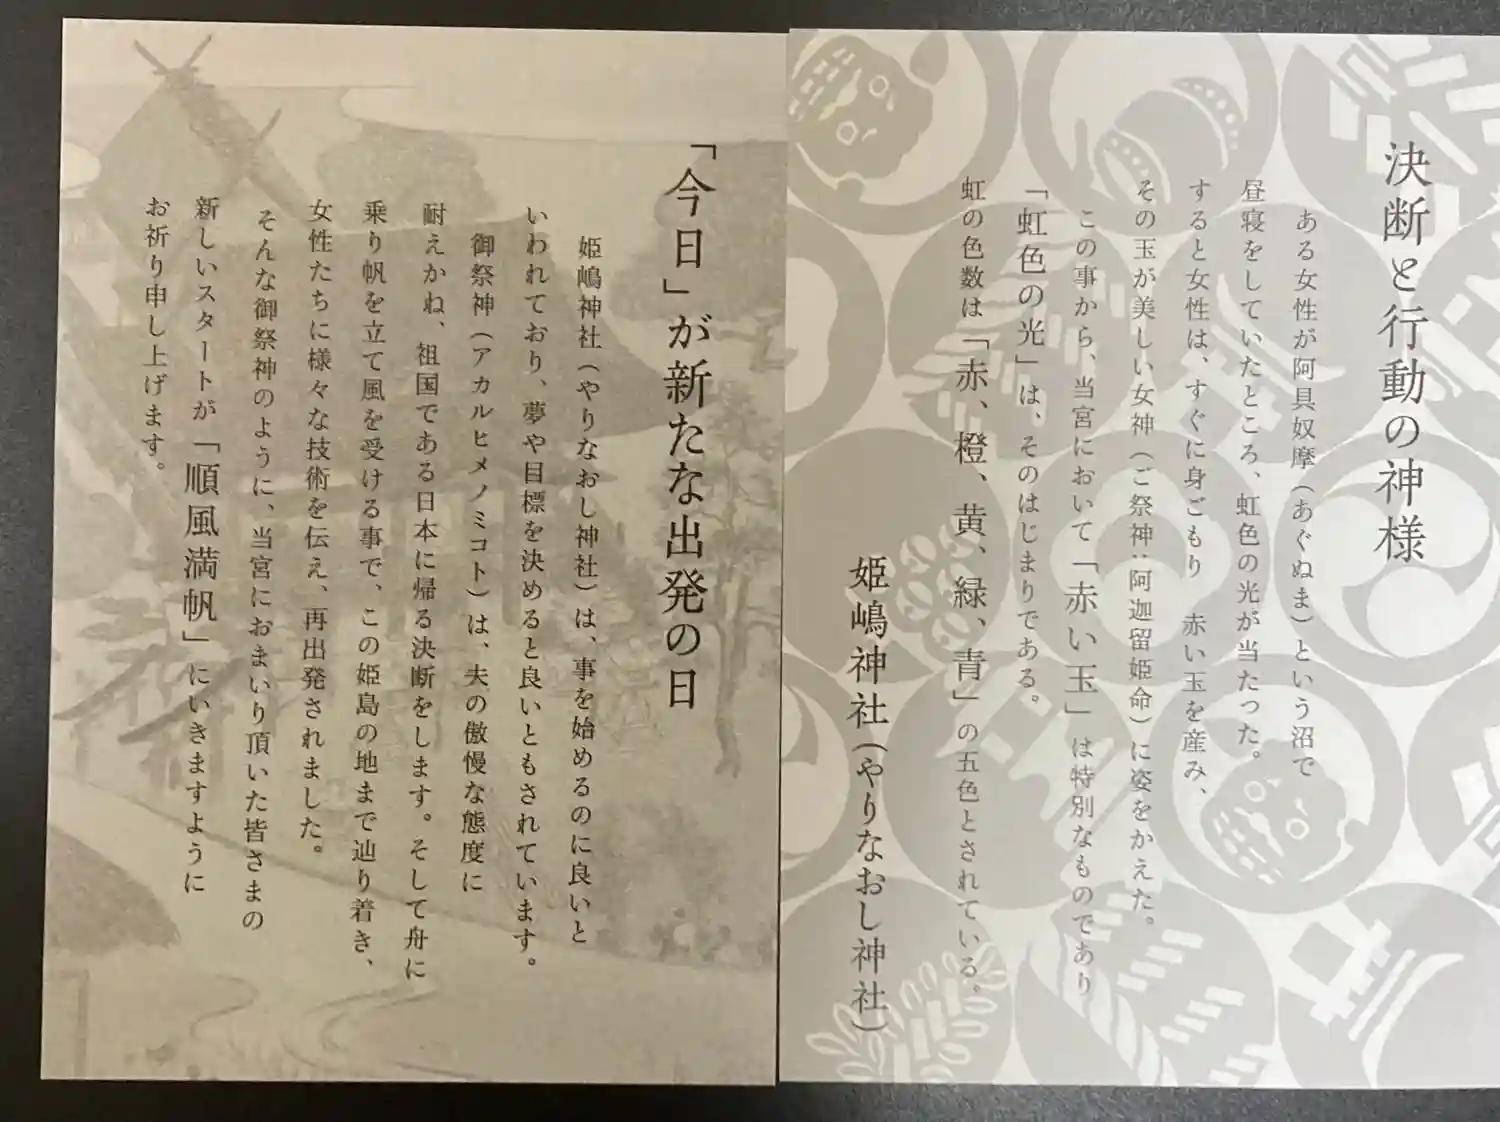 決断と行動の神様
ある女性が阿具奴摩（あぐぬま）という沼で
昼寝をしていたところ、虹色の光が当たった。
すると女性は、すぐに身ごもり　赤い玉を産み、
その玉が美しい女神（ご祭神：阿迦留姫命）に姿をかえた。
この事から、当宮において「赤い玉」は特別なものであり
「虹色の光」は、そのはじまりである。
虹の色数は「赤、橙、黄、緑、青」の五色とされている。
姫嶋神社（やりなおし神社）
「今日」が新たな出発の日
姫嶋神社（やりなおし神社）は、事を始めるのに良いと
いわれており、夢や目標を決めると良いともされています。
御祭神（アカルヒメノミコト）は、夫の傲慢な態度に
耐えかね、祖国である日本に帰る決断をします。そして舟に
乗り帆を立て風を受ける事で、この姫島の地まで辿り着き、
女性たちに様々な技術を伝え、再出発されました。
そんな御祭神のように、当宮におまいり頂いた皆さまの
新しいスタートが「順風満帆」にいきますように
お祈り申し上げます。